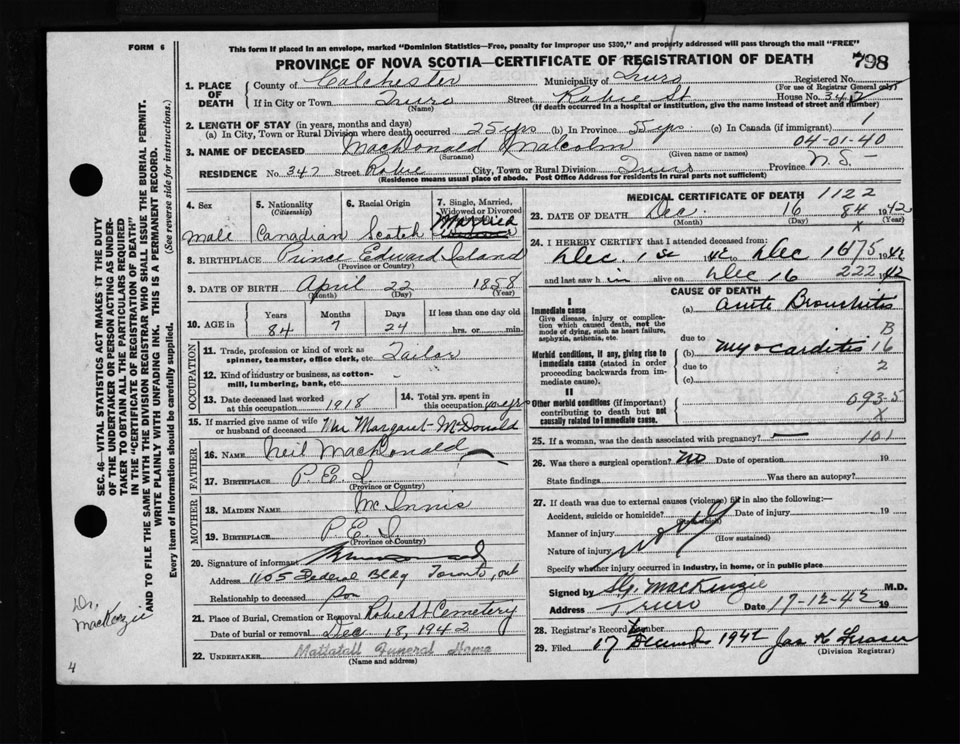 FORM 6
This form if placed in an envelope, marked "Dominion Statistics—Free, penalty for improper use $300," and properly addressed will pass through the mail "FREE"
PROVINCE OF NOVA SCOTIA—CERTIFICATE OF REGISTRATION OF DEATH
798
1. PLACE OF DEATH
County of Colchester Municipality of Truro Registered No.
(For use of Registrar General only)
If in City or Town Truro Street Robie St House No. 342
(Name) (If death occurred in a hospital or institution, give the name instead of street and number)
2. LENGTH OF STAY (in years, months and days)
(a) In City, Town or Rural Division where death occurred 25 yrs (b) In Province 55 yrs. (c) In Canada (if immigrant) 1
3. NAME OF DECEASED MacDonald Malcolm 04-01-40
(Surname) (Given name or names)
RESIDENCE No. 347 Street Robie City, Town or Rural Division Truro Province N.S.-
(Residence means usual place of abode. Post Office Address for residents in rural parts not sufficient)
4. Sex
5. Nationality (Citizenship)
6. Racial Origin
7. Single, Married, Widowed or Divorced
Male Canadian Scotch Married
8. BIRTHPLACE Prince Edward Island
(Province or Country)
9. DATE OF BIRTH April 22 1858
(Month) (Day) (Year)
10. AGE in Years Months Days If less than one day old
84 7 24 hrs. or min.
OCCUPATION
11. Trade, profession or kind of work as spinner, teamster, office clerk, etc. Tailor
12. Kind of industry or business, as cotton-mill, lumbering, bank, etc. -
13. Date deceased last worked at this occupation 1918
14. Total yrs. spent in this occupation 40 yrs
15. If married give name of wife or husband of deceased Mrs Margaret McDonald
FATHER
16. NAME Neil MacDonald
17. BIRTHPLACE P.E.I.
(Province or Country)
MOTHER
18. MAIDEN NAME McInnis
19. BIRTHPLACE P.E.I.
(Province or Country)
20. Signature of informant
Address 1105 Federal Bldg Toronto, Ont
Relationship to deceased Son
21. Place of Burial, Cremation or Removal Robie St Cemetery
Date of burial or removal Dec 18, 1942
22. UNDERTAKER Mattatall Funeral Home
(Name and address)
MEDICAL CERTIFICATE OF DEATH 1122
23. DATE OF DEATH Dec. 16 84 1942
(Month) (Day) (Year)
24. I HEREBY CERTIFY that I attended deceased from:
Dec. 1st 42 to Dec 1675 42
and last saw him alive on Dec 16 222 1942
CAUSE OF DEATH
I
Immediate cause
Give disease, injury or complication which caused death, not the mode of dying, such as heart failure, asphyxia, asthenia, etc.
(a) Acute Bronchitis
due to B
Morbid conditions, if any, giving rise to immediate cause (stated in order proceeding backwards from immediate cause).
(b) Myocarditis 16
due to 2
(c)
II
Other morbid conditions (if important) contributing to death but not causally related to immediate cause.
093-5
X
25. If a woman, was the death associated with pregnancy? — 101
26. Was there a surgical operation? No Date of operation 19
State findings Was there an autopsy?
27. If death was due to external causes (violence) fill in also the following:
Accident, suicide or homicide? Date of injury 19
(State which)
Manner of injury
(How sustained)
Nature of injury
Specify whether injury occurred in industry, in home, or in public place
Signed by S.G. MacKenzie M.D.
Address Truro Date 17-12-42 19
28. Registrar's Record Number
29. Filed 17 December 1942 Jas H Fraser
(Division Registrar)
SEC. 46—VITAL STATISTICS ACT MAKES IT THE DUTY OF THE UNDERTAKER OR PERSON ACTING AS UNDERTAKER TO OBTAIN ALL THE PARTICULARS REQUIRED IN THE "CERTIFICATE OF REGISTRATION OF DEATH" AND TO FILE THE SAME WITH THE DIVISION REGISTRAR WHO SHALL ISSUE THE BURIAL PERMIT.
WRITE PLAINLY WITH UNFADING INK. THIS IS A PERMANENT RECORD.
Every item of information should be carefully supplied. (See reverse side for instructions.)
Dr.
MacKenzie
4